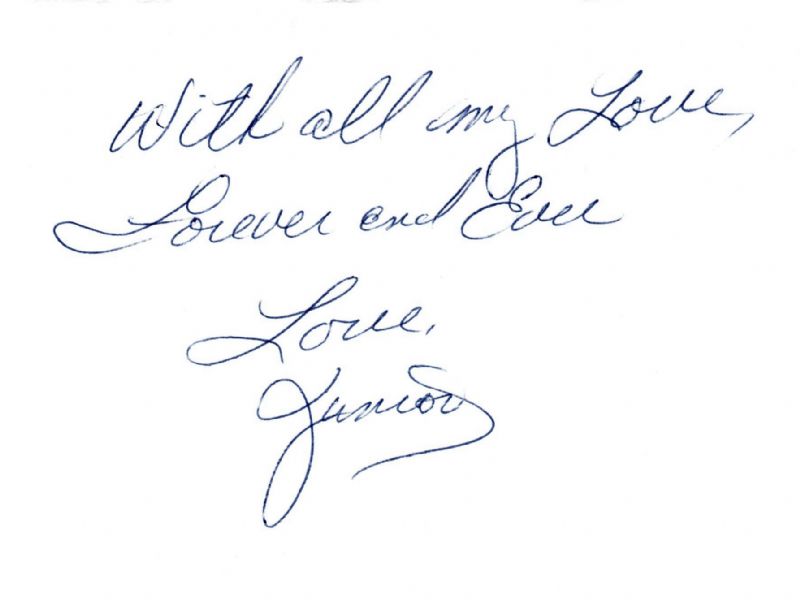 With all my Love,
Forever and Ever
Love,
Junior